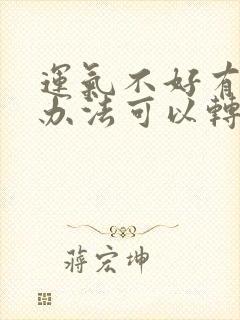 運氣不好有
办法可以轉
蔣宏坤